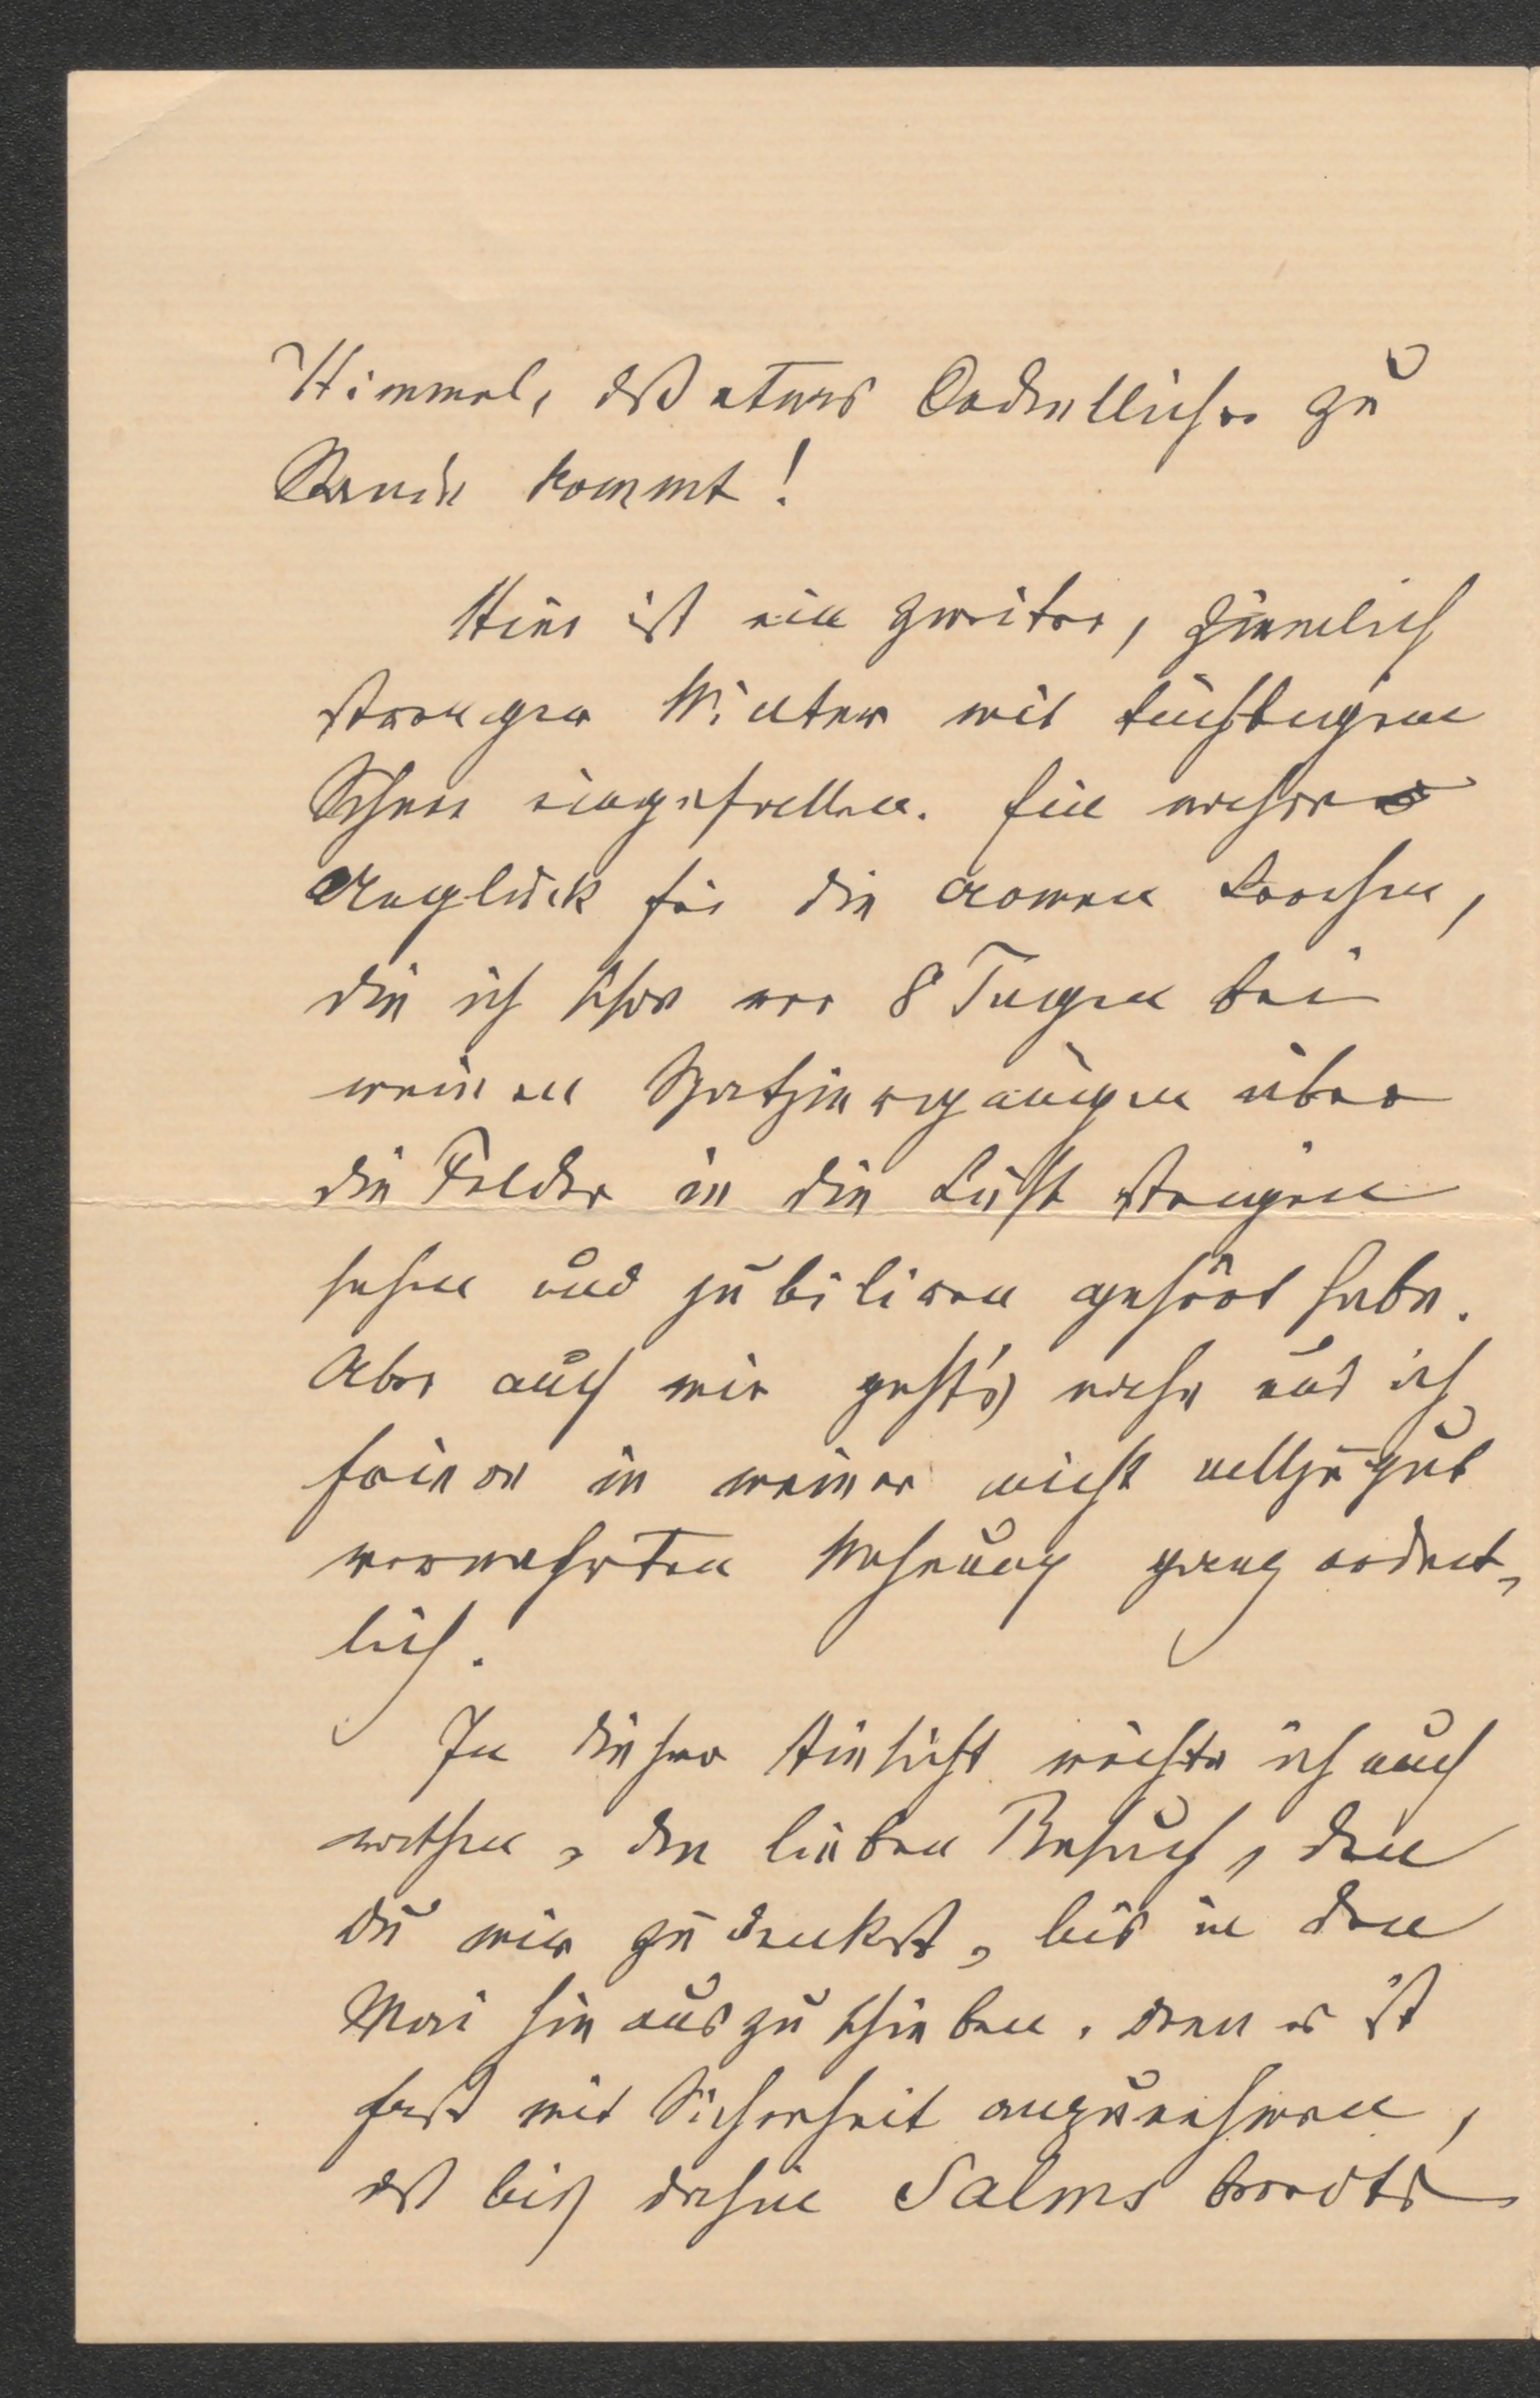 Himmel, dß etwas Ordentliches zu
Stande kommt!
Hier ist ein zweiter, ziemlich
strenger Winter mit tüchtigem
Schnee eingefallen. Ein wahres
Unglück für die armen Lerchen,
die ich schon vor 8 Tagen bei
meinen Spatziergängen über
die Felder in die Luft steigen
sehen und jubiliren gehört habe.
Aber auch mir geht's nahe und ich
friere in meiner nicht allzugut
verwahrten Wohnung ganz ordent-
lich.
In dieser Hinsicht möchte ich auch
rathen, den lieben Besuch, den
du mir zudenkst, bis in den
Mai hinauszuschieben. Denn es ist
fast mit Sicherheit anzunehmen,
dß bis dahin Salms bereits